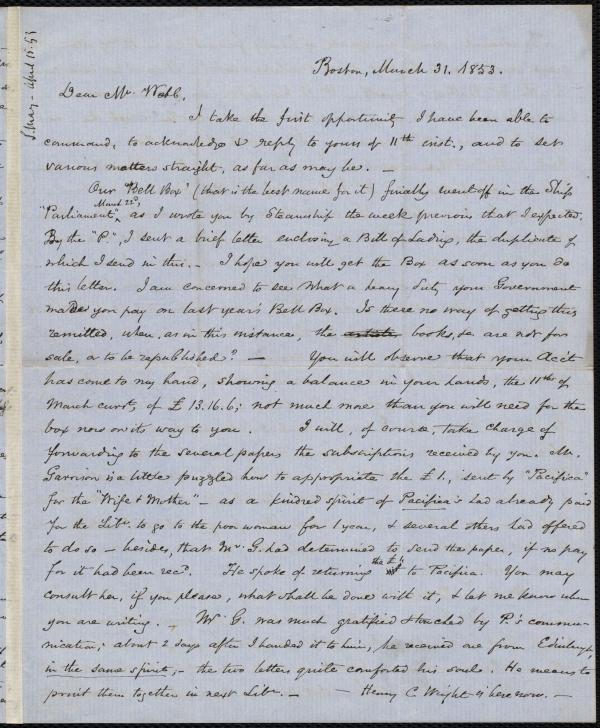 Boston, March 31. 1853.
Dear Mr. Webb,
I take the first opportunity I have been able to
command, to acknowledge & reply to yours of 11th inst., and to set
various matters straight, as far as may be. —
Our 'Bell Box' (that is the best name for it) finally went off in the Ship
"Parliament", March 22d, as I wrote you by Steamship the week previous that I expected.
By the "P.", I sent a brief letter enclosing a Bill of Lading, the duplicate of
which I send in this. — I hope you will get the Box as soon as you do
this letter. I am concerned to see what a heavy duty your Government
made you pay on last year's Bell Box. Is there no way of getting this
remitted, when, as in this instance, the books, &c are not for
sale, or to be republished? — You will observe that your Acct
has come to my hand, showing a balance in your hands, the 11th of
March curt, of £13.16.6; not much more than you will need for the
box now on its way to you. I will, of course, take charge of
forwarding to the several papers the subscriptions received by you. Mr.
Garrison is a little puzzled how to appropriate the £1., sent by "Pacifica"
for the "Wife & Mother" — as a kindred spirit of Pacifica's had already paid
for the Libr. to go to the poor woman for 1 year, & several others had offered
to do so — besides, that Mr. G. had determined to send the paper, if no pay
for it had been recd. He spoke of returning the £1 to Pacifica. You may
consult her, if you please, what shall be done with it, & let me know when
you are writing. — W. G. was much gratified & touched by P.'s commu-
nication; about 2 days after I handed it to him, he received one from Edinburgh,
in the same spirit; — the two letters quite comforted his soul. He means to
print them together in next Libr. — — Henry C. Wright is here now. —
S. May - April 15. 53